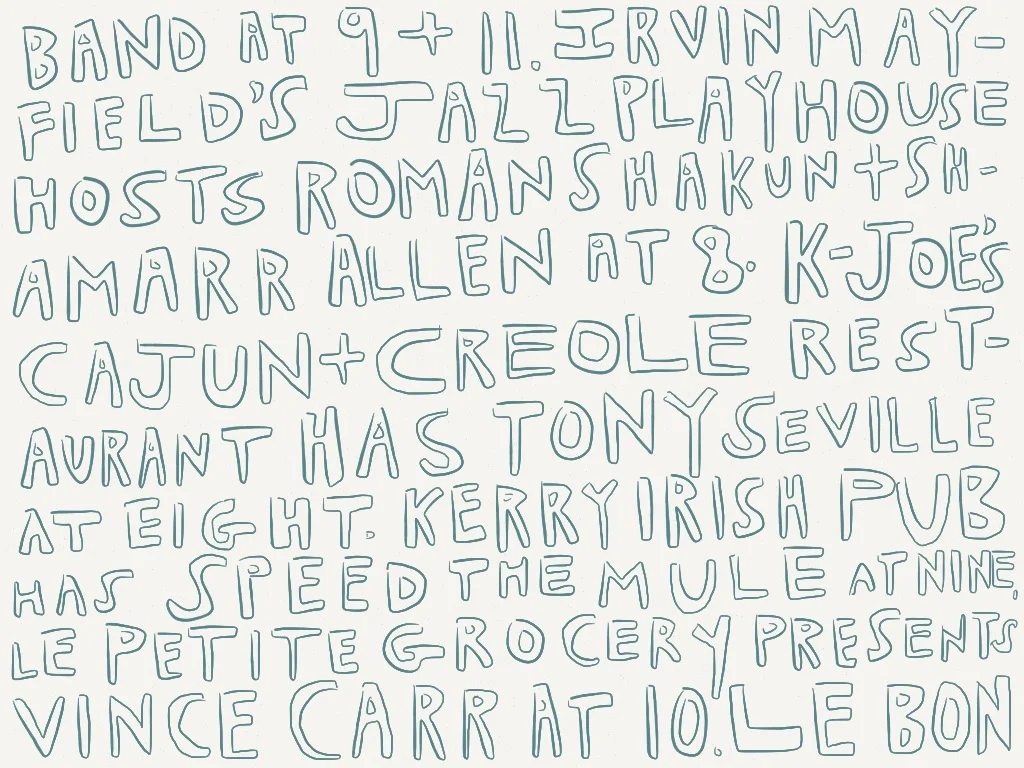 BAND AT 9 + 11. IRVIN MAY-
FIELD'S JAZZ PLAYHOUSE
HOSTS ROMAN SHAKUN + SH-
AMARR ALLEN AT 8. K-JOE'S
CAJUN + CREOLE REST-
AURANT HAS TONY SEVILLE
AT EIGHT. KERRY IRISH PUB
HAS SPEED THE MULE AT NINE,
LE PETITE GROCERY PRESENTS
VINCE CARR AT 10. LE BON